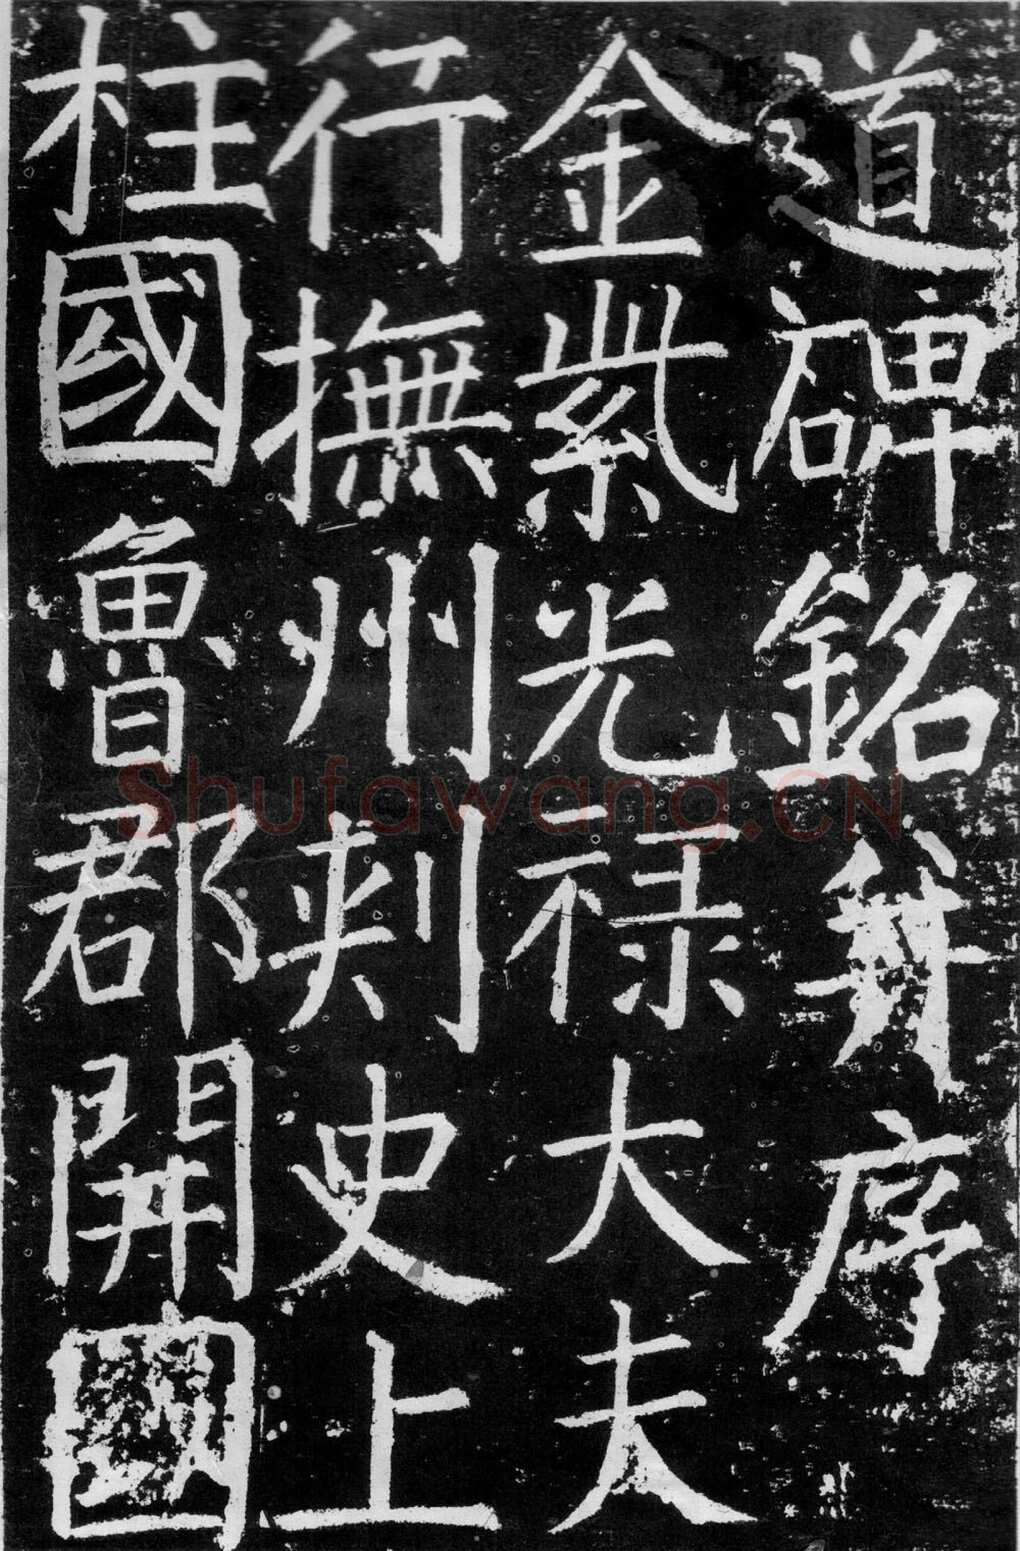 道碑銘并序
金紫光禄大夫
行撫州刺史上
柱國魯郡開國
Shufawang.CN